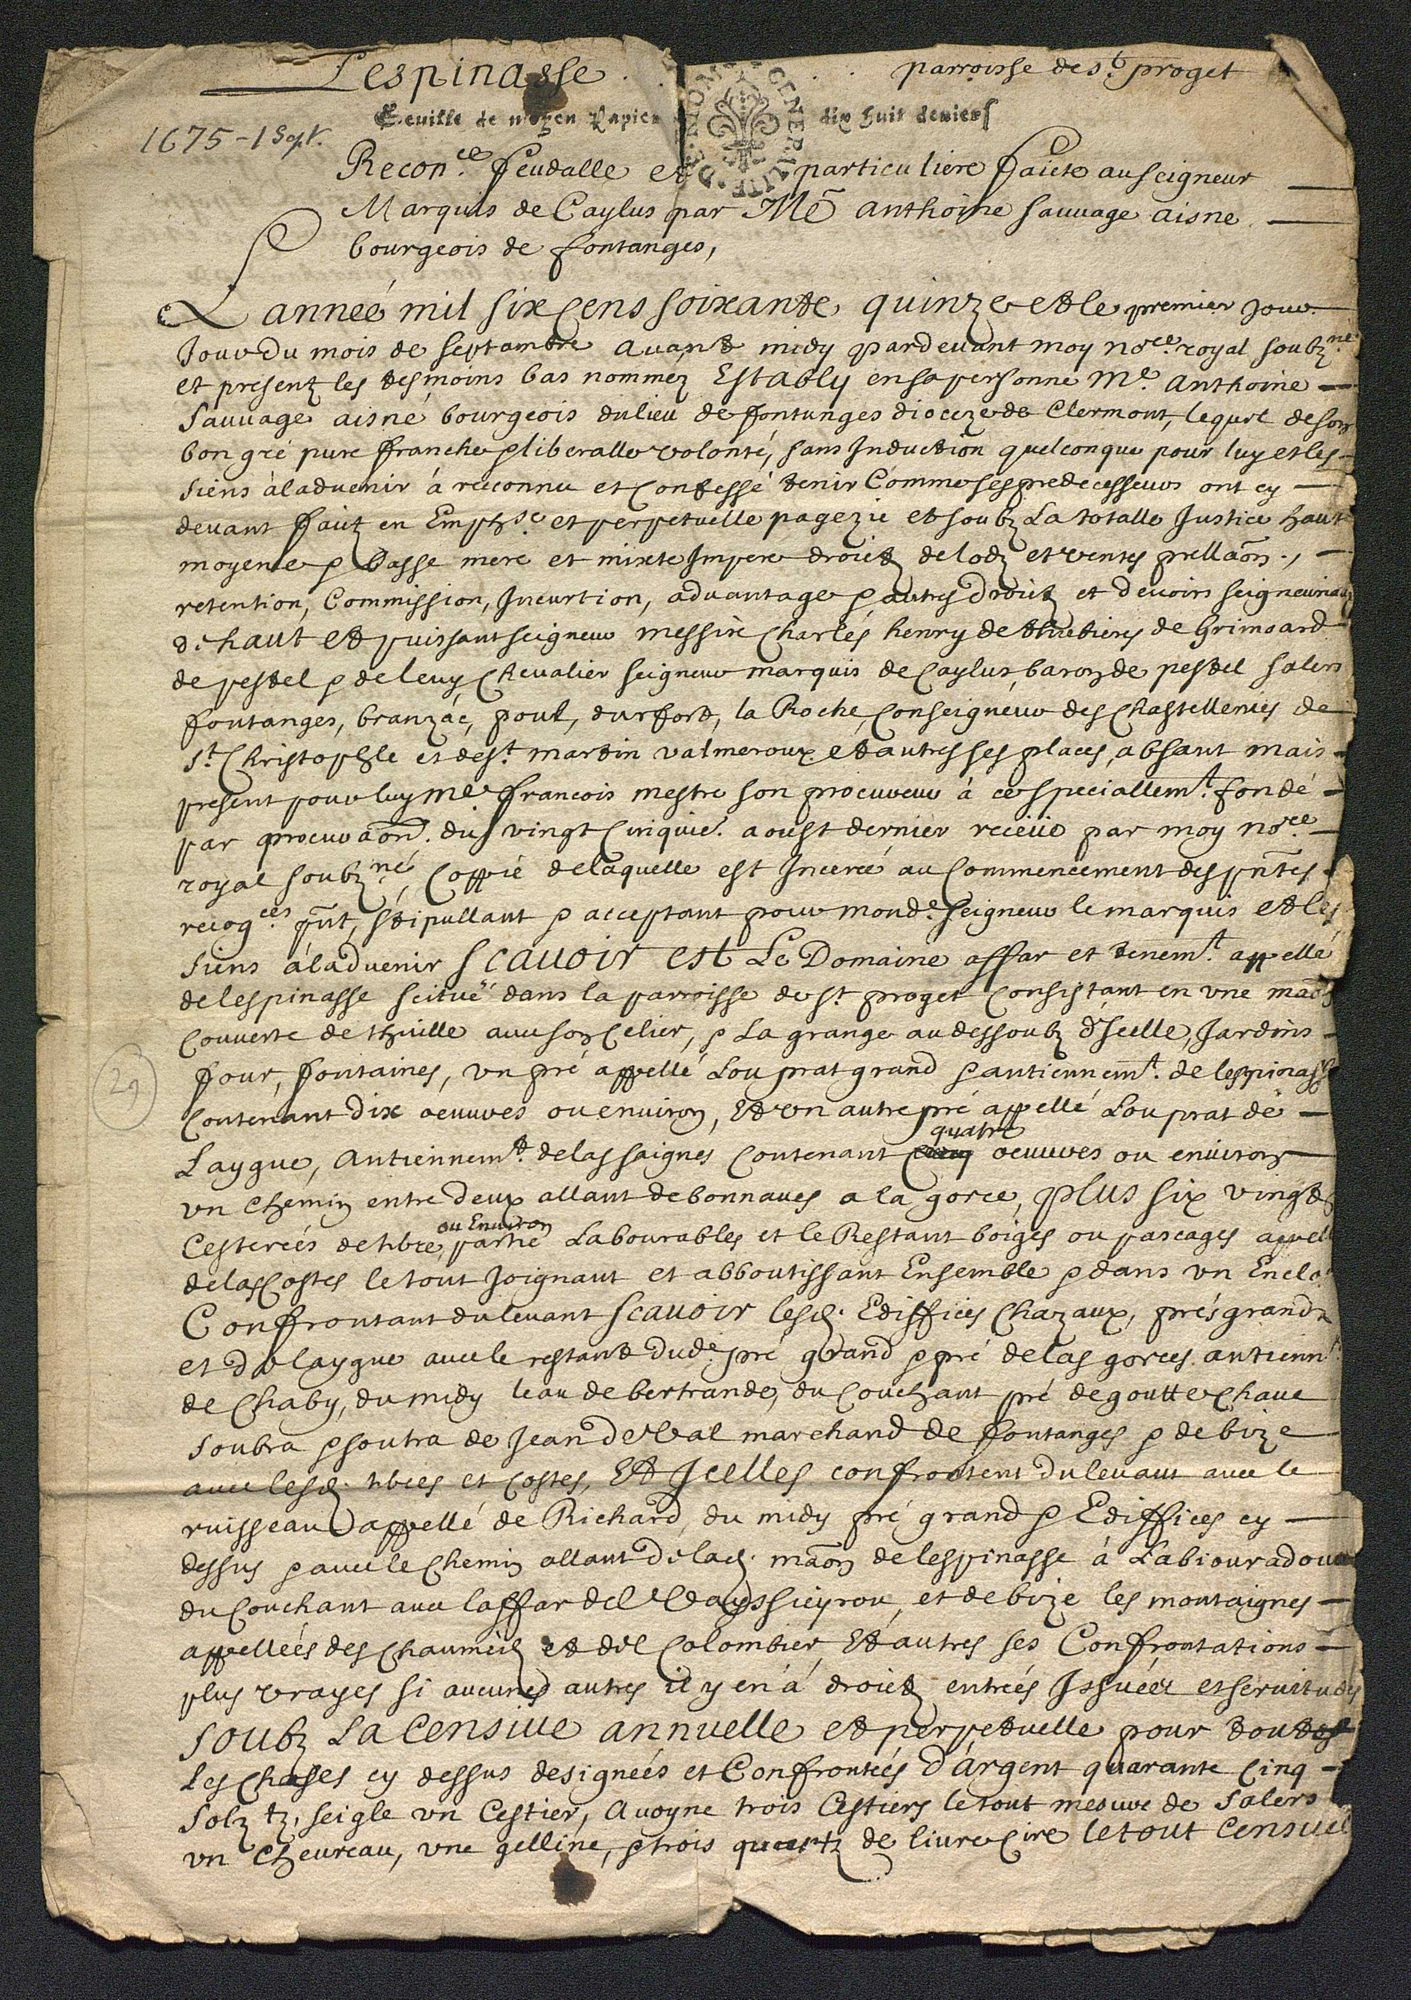 Lespinasse
parroisse de st. proget
GENERALITE DE RIOM
Feuille de moyen Papier dix huit deniers
1675 - 1 Sept.
Reconce. feudalle et particuliere faicte au seigneur
Marquis de Caylus par Me anthoine sauvage aisne
bourgeois de fontanges,
L'anneé mil six cens soixante quinze et le premier jour
Jour du mois de septambre avant midy pardevant moy nore. royal soubzne.
et presentz les tesmoins bas nommez Estably en sa personne Me. anthoine
sauvage aisné bourgeois du lieu de fontanges dioceze de Clermont, lequel de son
bon gré pure franche & liberalle volonté, sans Induction quelconque pour luy et les
siens à l'advenir à reconnu et Confessé tenir Comme ses predecesseurs ont cy
devant faitz en Emphse. et perpetuelle pagezie et soubz La totalle Justice haute
moyene & basse mere et mixte Impere droictz de lodz et ventes prellaon.,
retention, Commission, Incurtion, advantage & autres droictz et devoirs seigneuriaux
de haut et puissant seigneur messire Charles henry de thubieres de Grimoard
de pestel & de levy Chevalier seigneur marquis de Caylus, baron de pestel salers
fontanges, branzac, pout, durfort, la Roche, Conseigneur des Chastellenies de
st. Christophle et de st. martin valmeroux et autres ses places, absant mais
present pour luy me. francois mestre son procureur à ce speciallemt. fondé
par procuraon. du vingt cinquie. aoust dernier receüe par moy nore.
royal soubzné, Coppie de laquelle est Inceree au Commencement des pntes
recogces. pnt, stipullant & acceptant pour mond. seigneur le marquis et les
siens à l'advenir scavoir est Le Domaine affar et tenemt. appellé
de lespinasse scitué dans la parroisse de st. proget Consistant en une maon
Couverte de thuille avec son Celier, & La grange au dessoubz d'Icelle, Jardins
four, fontaines, un pré appellé Lou prat grand & antiennemt. de lespinasse
Contenant dix oeuvres ou environ, et un autre pré appellé Lou prat de
Laygue, antiennemt. de las saignes Contenant quatre oeuvres ou environ
un chemin entre deux allant de bonnaves a la gorce, plus six vingt
Cestereés de tbre, ou Environ partie Labourables et le Restant boiges ou pascages appellé
de las Costes le tout Joignant et abboutissant Ensemble & dans un Enclos
Confrontant du levant scavoir lesd. Ediffices Chazaux, prés grand
et de laygue avec le restant dud. pré grand & pré de las gorces antiennt.
de Chaby, du midy leau de bertrande, du Couchant pré de goutte Chave
soubra & soutra de Jean de Val marchand de fontanges & de bize
avec lesd. tbres et Costes, Et Icelles confrontent du levant avec le
ruisseau appellé de Richard, du midy pré grand & Ediffices cy
dessus & avec le Chemin allant de lad. maon de lespinasse à Labiouradour
du Couchant avec laffar del Vayssieyrou, et de bize les montaignes
appelleés des Chaumeilz et del Colombier, Et autres ses Confrontations
plus vrayes si aucunes autres il y en à droictz entreés Issueés et servitudes
soubz La Censive annuelle et perpetuelle pour toutes
Les choses cy dessus designeés et Confronteés d'argent quarante cinq
solz tz, seigle un Cestier, avoyne trois Cestiers le tout mesure de salers
un Chevreau, une gelline, & trois quartz de livre Cire le tout Censuel
29